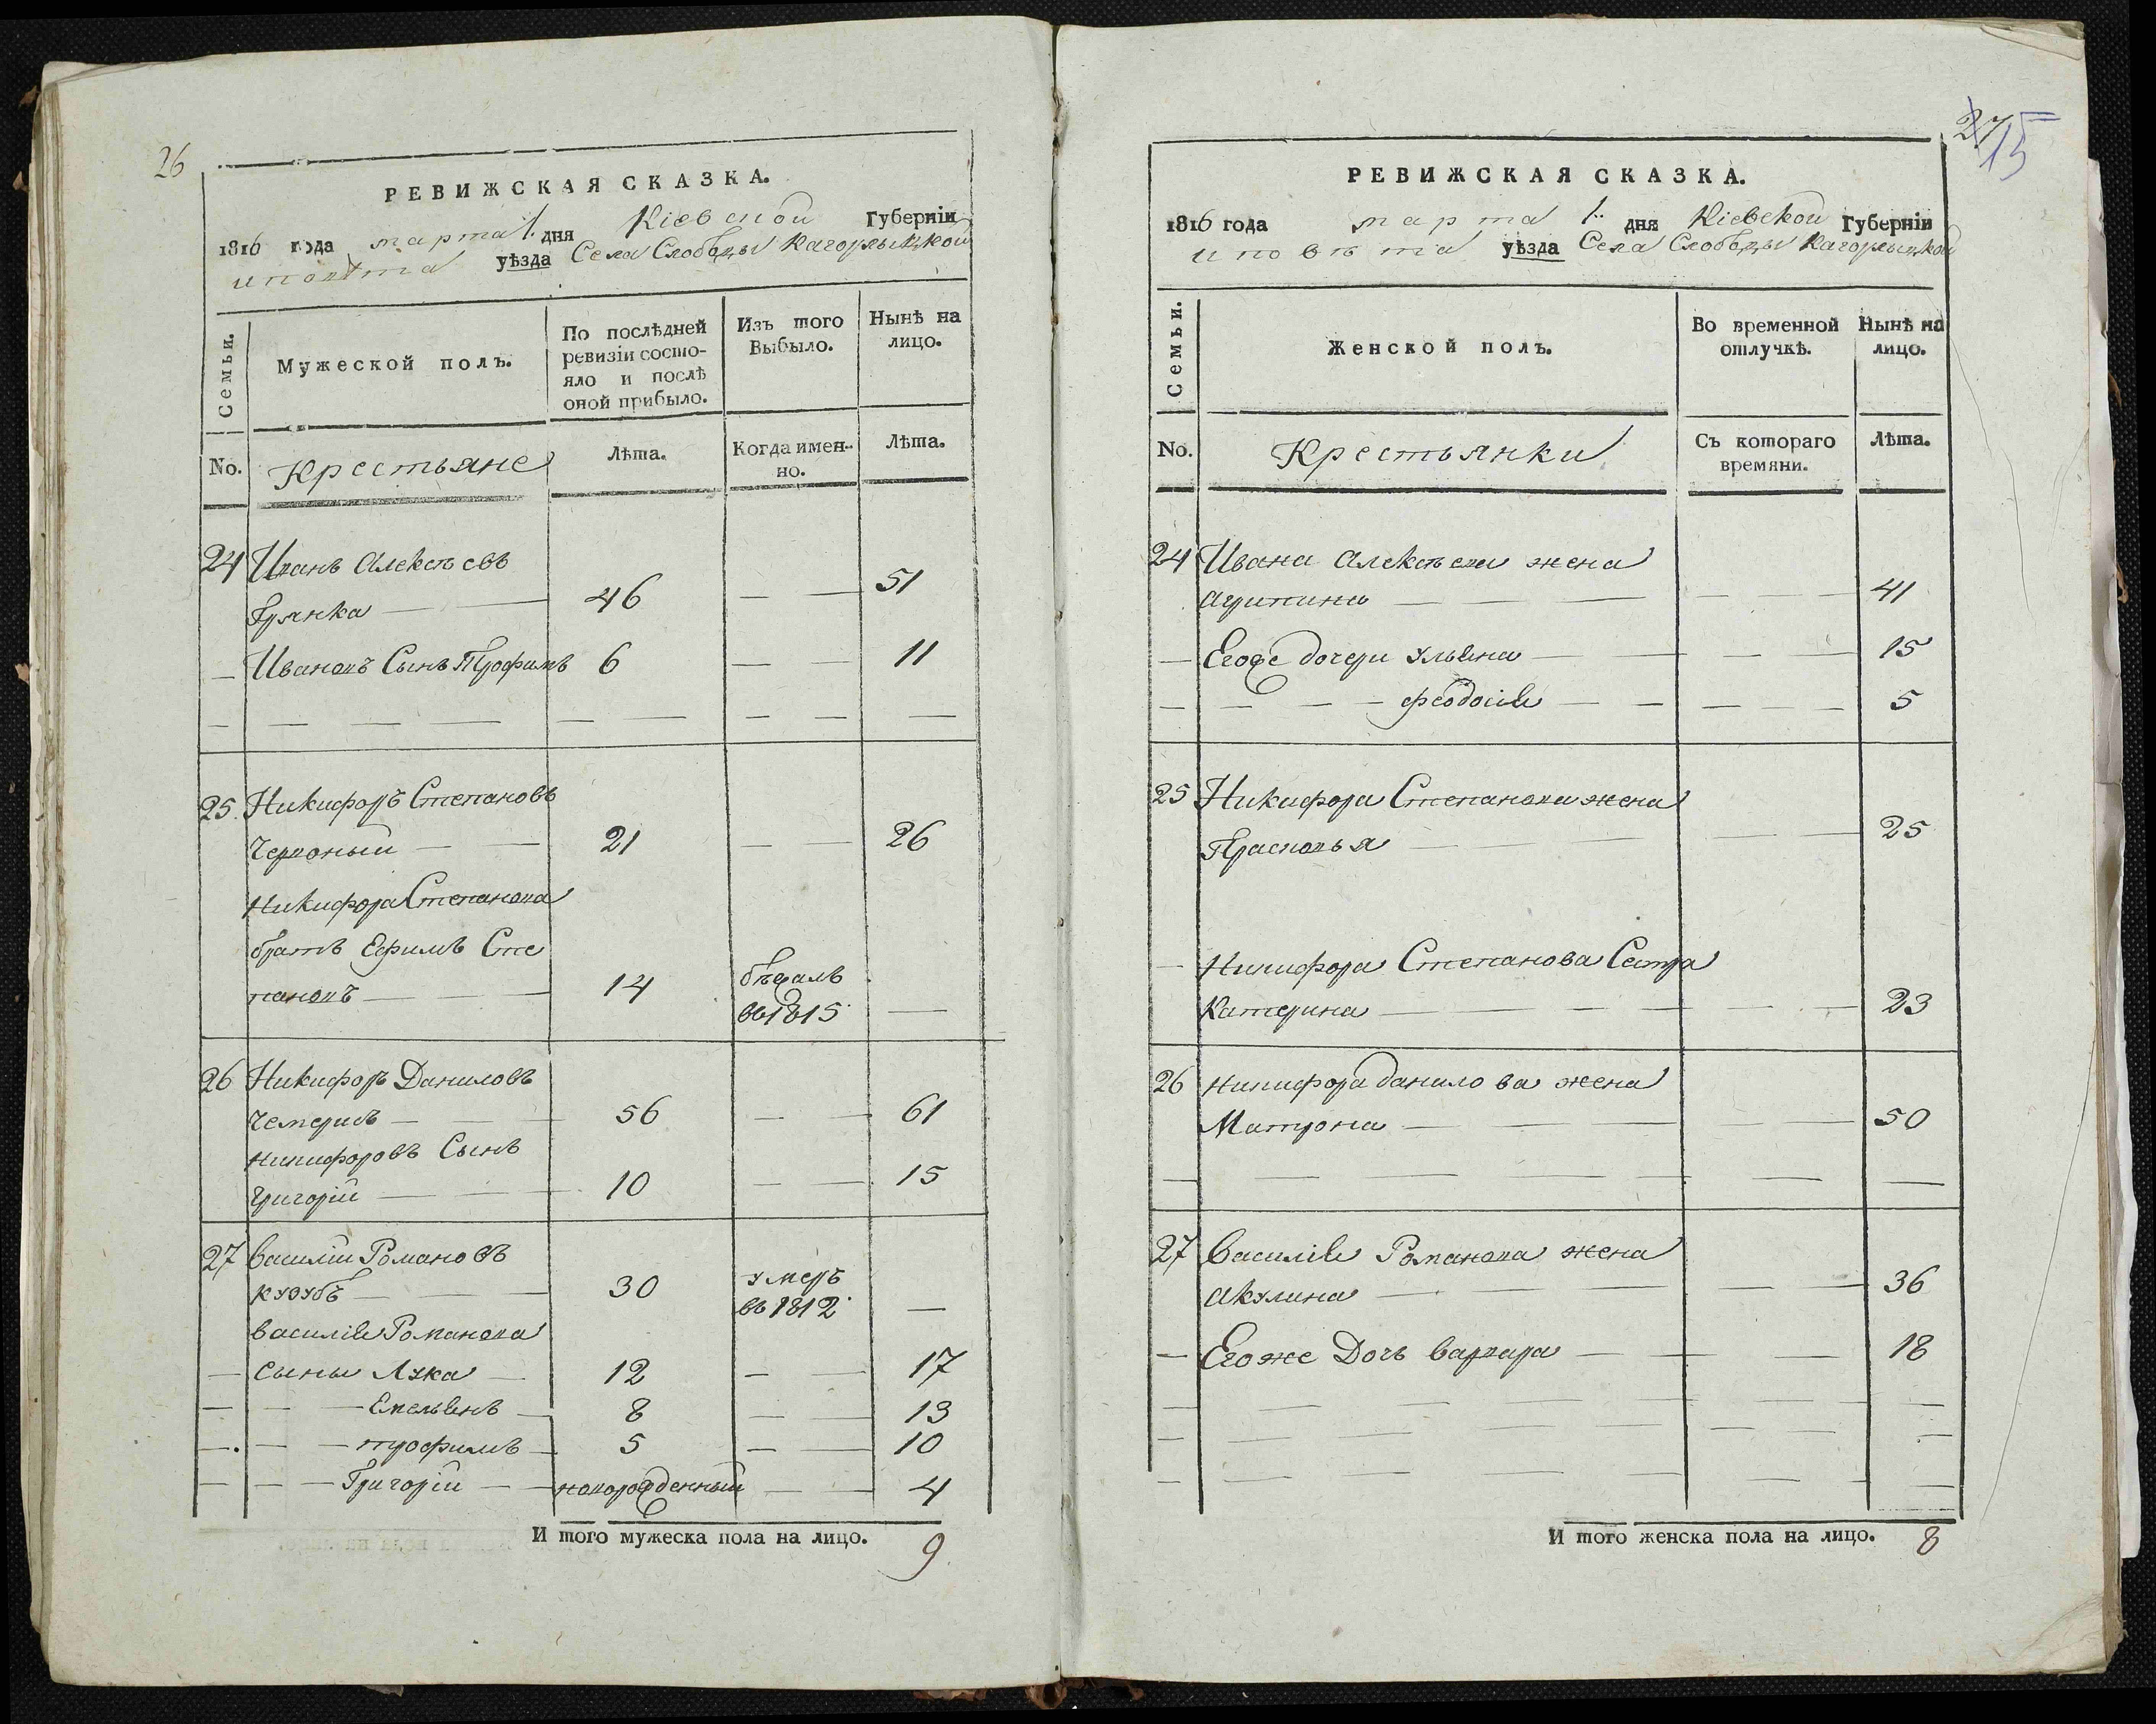 26
РЕВИЖСКАЯ СКАЗКА.
1816 года марта 1. дня Кіевской Губерніи
и повѣта уѣзда Села Слободы Кагорлыцкой
Семьи.
Мужеской полъ.
По послѣдней ревизіи состояло и послѣ оной прибыло.
Изъ того Выбыло.
Нынѣ на лицо.
No.
Крестьяне
Лѣта.
Когда именно.
Лѣта.
24 Иванъ Алексѣевъ
Грянка — — 46 — — 51
— Ивановъ Сынъ Трофимъ 6 — — 11
25. Никифоръ Степановъ
Червоный — — 21 — — 26
Никифора Степанова
братъ Ефимъ Сте
пановъ — — 14 бѣжалъ въ 1815 —
26 Никифоръ Даниловъ
Чемерисъ — — 56 — — 61
Никифоровъ Сынъ
Григорій — — 10 — — 15
27 Василій Романовъ
— — 30 умеръ въ 1812 —
Василія Романова
— сыны Лука — 12 — — 17
— — — Емельянъ — 8 — — 13
— — — трофимъ — 5 — — 10
— — — Григорій — — новорожденный — — 4
И того мужеска пола на лицо. 9
27
15
РЕВИЖСКАЯ СКАЗКА.
1816 года марта 1. дня Кіевской Губерніи
и повѣта уѣзда Села Слободы Кагорлыцкой
Семьи.
Женской полъ.
Во временной отлучкѣ.
Нынѣ на лицо.
No.
Крестьянки
Съ котораго времяни.
Лѣта.
24 Ивана Алексѣева жена
Агрипина — — — — — — 41
— Егоже дочери Ульяна — — — — 15
— — — — феодосія — — — — — 5
25 Никифора Степанова жена
Прасковья — — — — 25
— Никифора Степанова Сестра
Катерина — — — — — — 23
26 Никифора данилова жена
Матрона — — — — — 50
27 Василія Романова жена
Акулина — — — — — 36
— Егоже Дочь Варвара — — — — 18
И того женска пола на лицо. 8